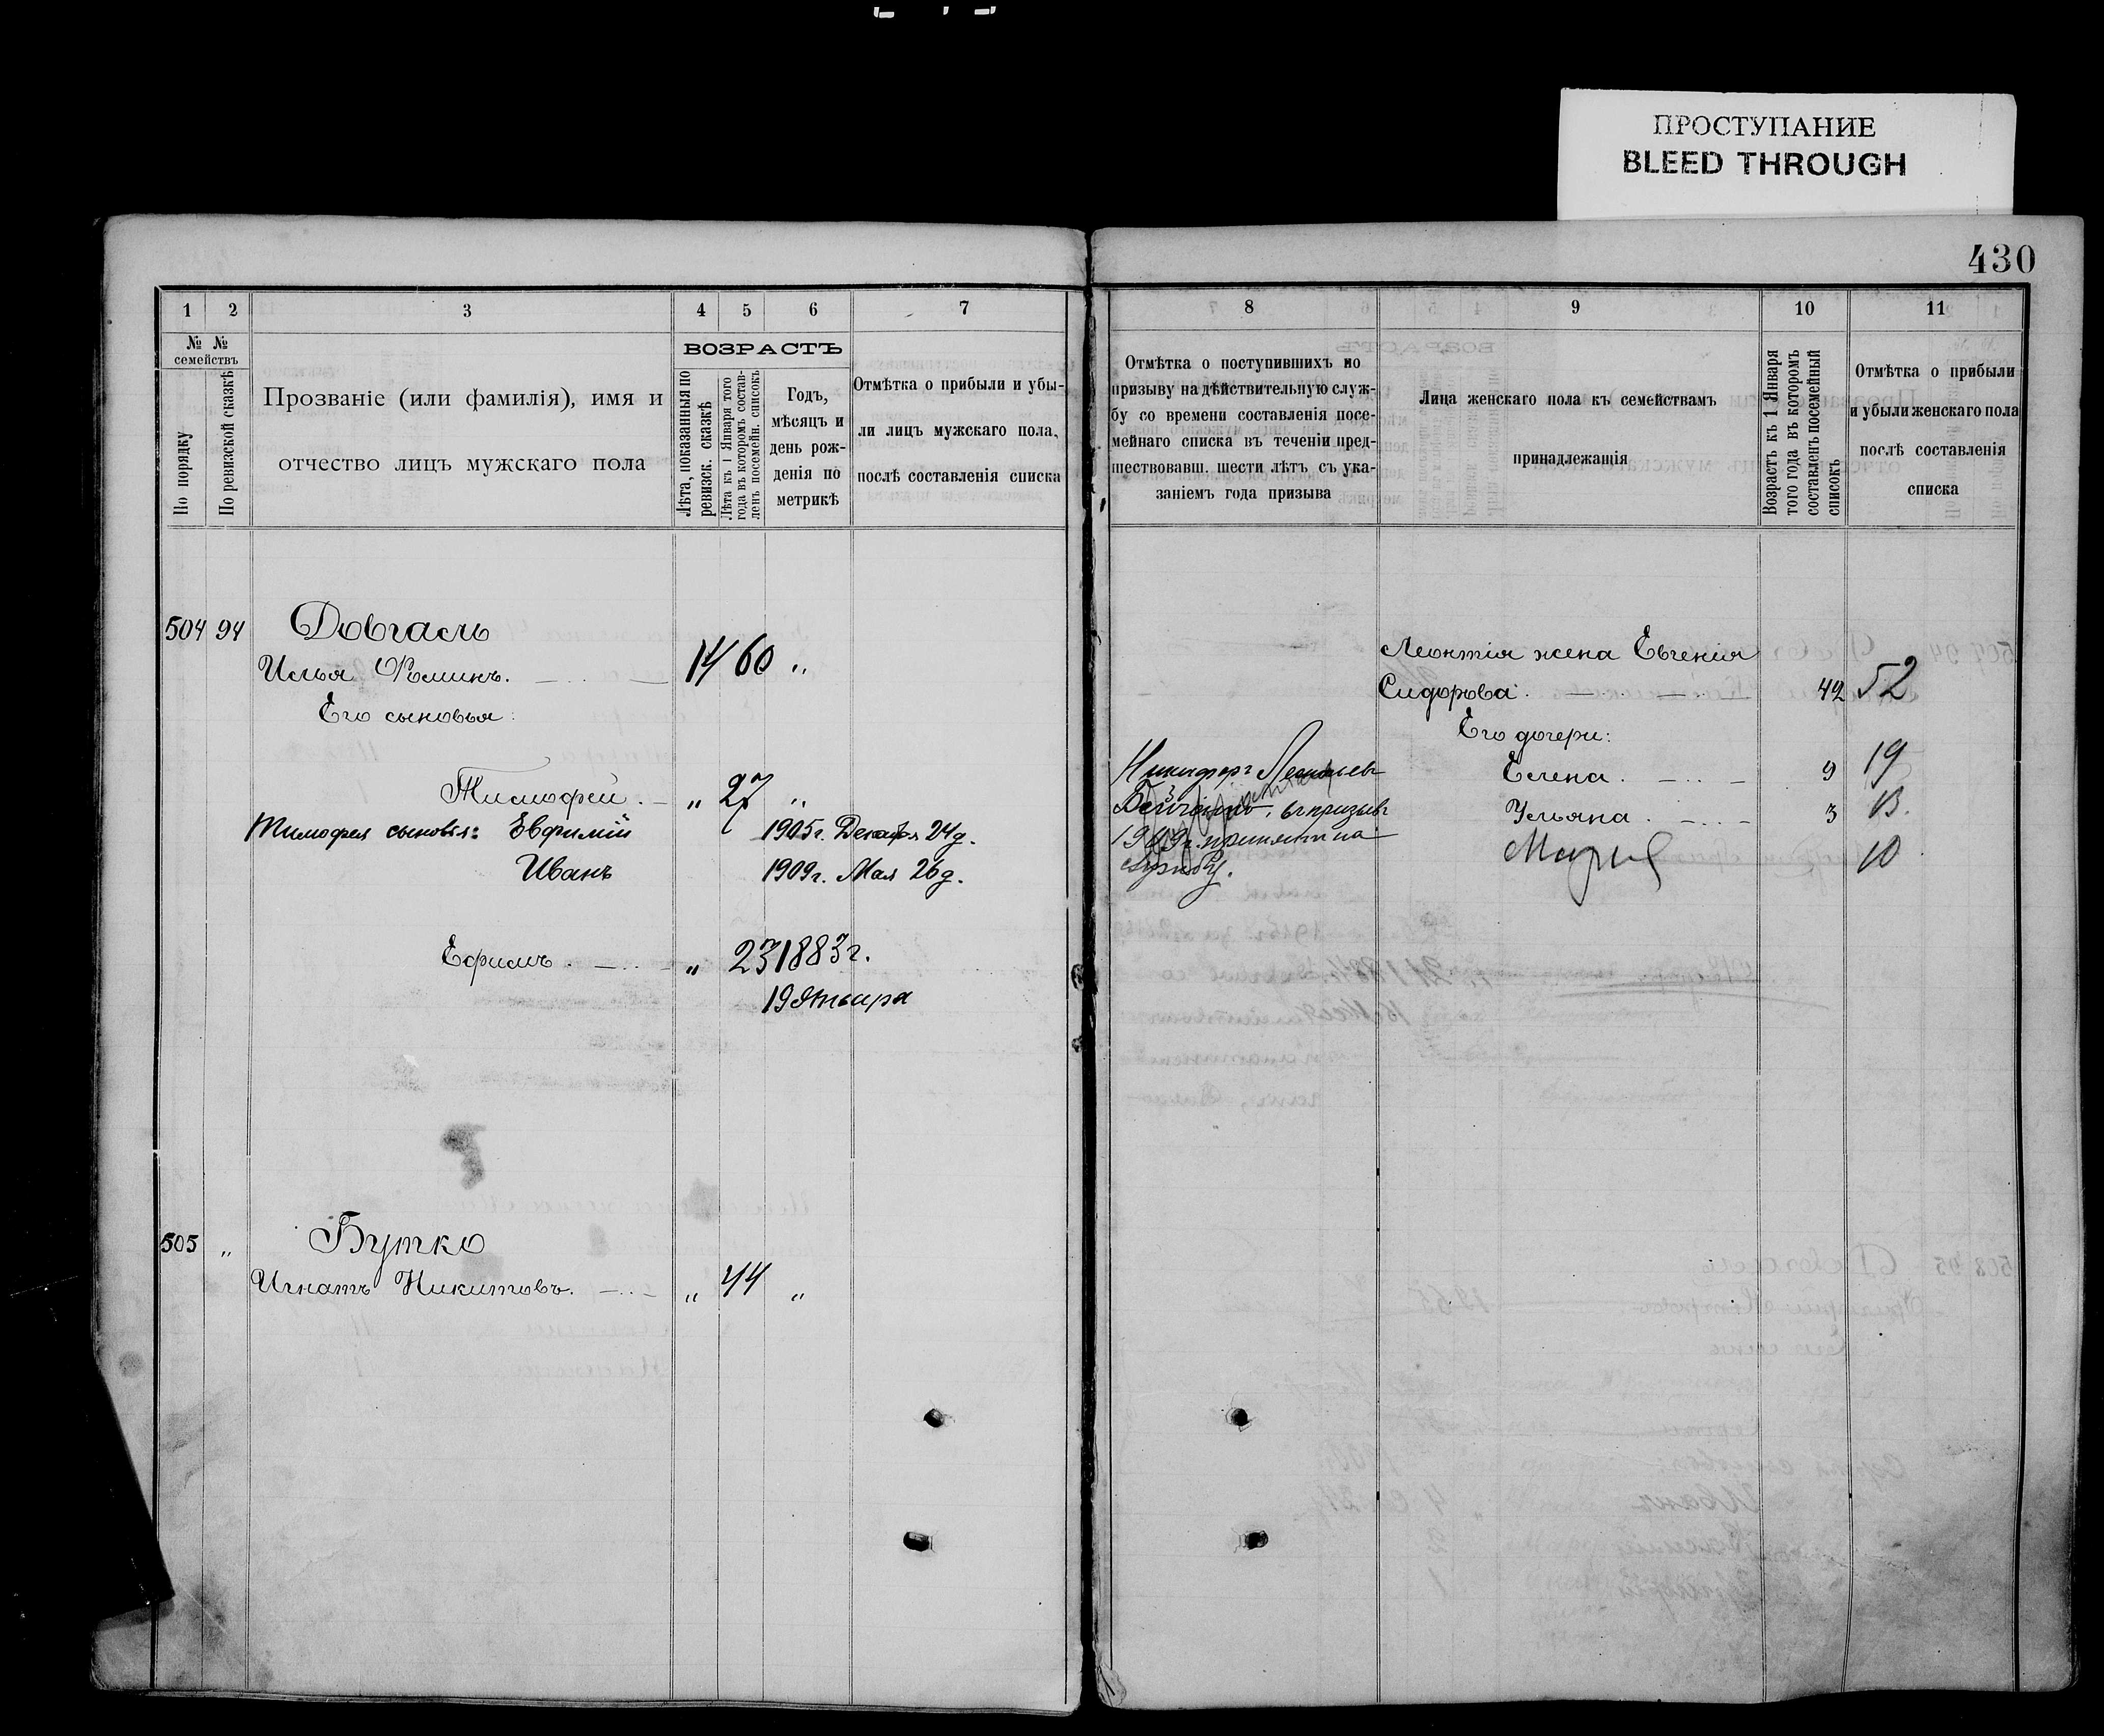 ПРОСТУПАНИЕ
BLEED THROUGH
430
1 2 3 4 5 6 7
№ № семействъ
По порядку
По ревизской сказкѣ
Прозваніе (или фамилія), имя и
отчество лицъ мужскаго пола
ВОЗРАСТЪ
Лѣта, показанныя по
ревизск. сказкѣ
Лѣта къ 1 Января того
года въ которомъ состав-
ленъ посемейн. списокъ
Годъ,
мѣсяцъ и
день рож-
денія по
метрикѣ
Отмѣтка о прибыли и убы-
ли лицъ мужскаго пола,
послѣ составленія списка
504 94 Довгаль
Илья Фоминъ. 14 60 "
Его сыновья:
Тимофей. " 27 "
Тимофея сыновья: Евфимій 1905г. Декабря 24д.
Иванъ 1909г. Мая 26д.
Ефимъ. " 23 1883г.
19 Января
505 " Бутко
Игнатъ Никитовъ. " 44 "
8 9 10 11
Отмѣтка о поступившихъ по
призыву на дѣйствительную служ-
бу со времени составленія посе-
мейнаго списка въ теченіи пред-
шествовавш. шести лѣтъ съ ука-
заніемъ года призыва
Лица женскаго пола къ семействамъ
принадлежащія
Возрастъ къ 1 Января
того года въ которомъ
составленъ посемейный
списокъ
Отмѣтка о прибыли
и убыли женскаго пола
послѣ составленія
списка
Леонтія жена Евгенія
Сидорова. 42 52
Его дочери:
Елена. 9 19
Ульяна. 3 13.
Марія 10
Никифоръ
въ призывъ
принятъ на
службу.